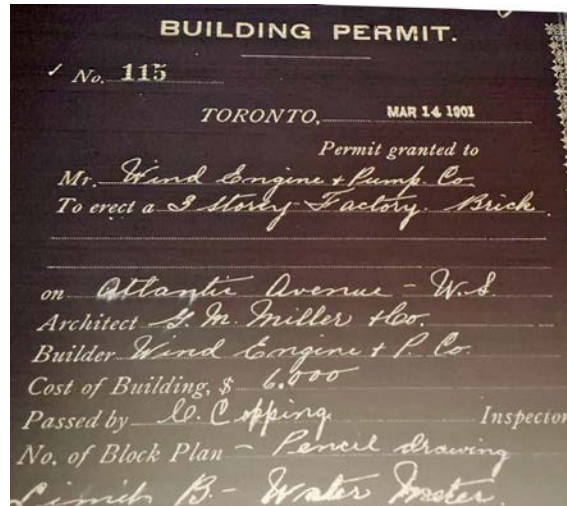 BUILDING PERMIT.
No. 115
TORONTO, MAR 14 1901
Permit granted to
Mr. Wind Engine + Pump Co
To erect a 3 Storey Factory. Brick.
on Atlantic Avenue - W.S.
Architect G. M. Miller + Co.
Builder Wind Engine + P. Co.
Cost of Building, $ 6.000
Passed by C. Copping Inspector
No. of Block Plan - Pencil drawing
Limit B - Water Meter.